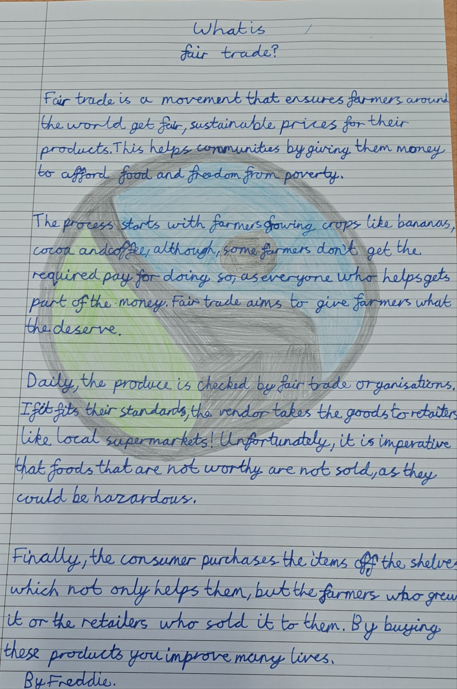 What is
fair trade?
Fair trade is a movement that ensures farmers around
the world get fair, sustainable prices for their
products. This helps communities by giving them money
to afford food and freedom from poverty.
The process starts with farmers growing crops like bananas,
cocoa and coffee, although, some farmers don't get the
required pay for doing so, as everyone who helps gets
part of the money. Fair trade aims to give farmers what
the deserve.
Daily, the produce is checked by fair trade organisations.
If it fits their standards, the vendor takes the goods to retailers
like local supermarkets! Unfortunately, it is imperative
that foods that are not worthy are not sold, as they
could be hazardous.
Finally, the consumer purchases the items off the shelves
which not only helps them, but the farmers who grew
it or the retailers who sold it to them. By buying
these products you improve many lives.
By Freddie.